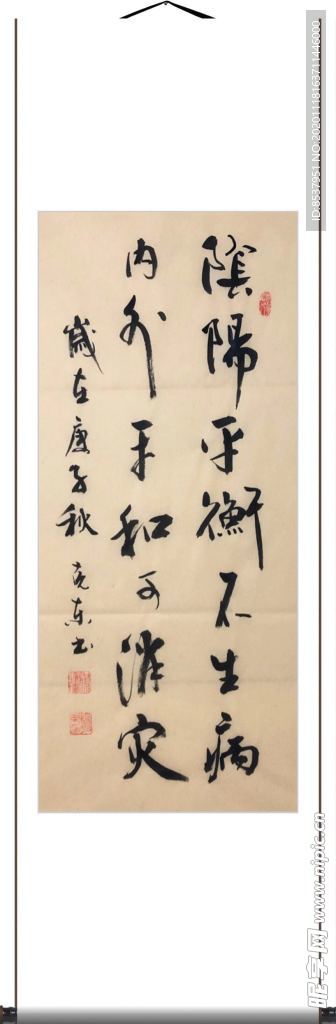 陰陽平衡不生病
内外平和可消灾
歲在庚子秋 克东书
ID:8537951 NO:20201118163711446000
昵享网 www.nipic.cn